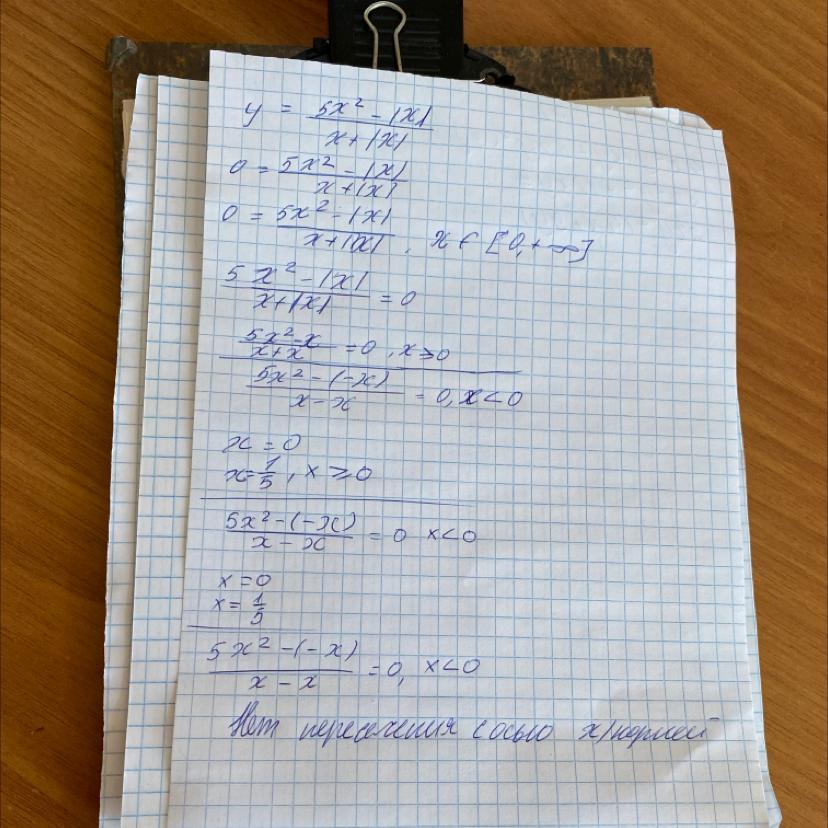 y = (5x² - |x|)/(x + |x|)
0 = (5x² - |x|)/(x + |x|)
0 = (5x² - |x|)/(x + |x|), x ∈ [0, + ∞]
(5x² - |x|)/(x + |x|) = 0
(5x² - x)/(x + x) = 0, x ≥ 0
(5x² - (-x))/(x - x) = 0, x < 0
x = 0
x = 1/5, x ≥ 0
(5x² - (-x))/(x - x) = 0 x < 0
x = 0
x = 1/5
(5x² - (-x))/(x - x) = 0, x < 0
Нет пересечения с осью x/корней